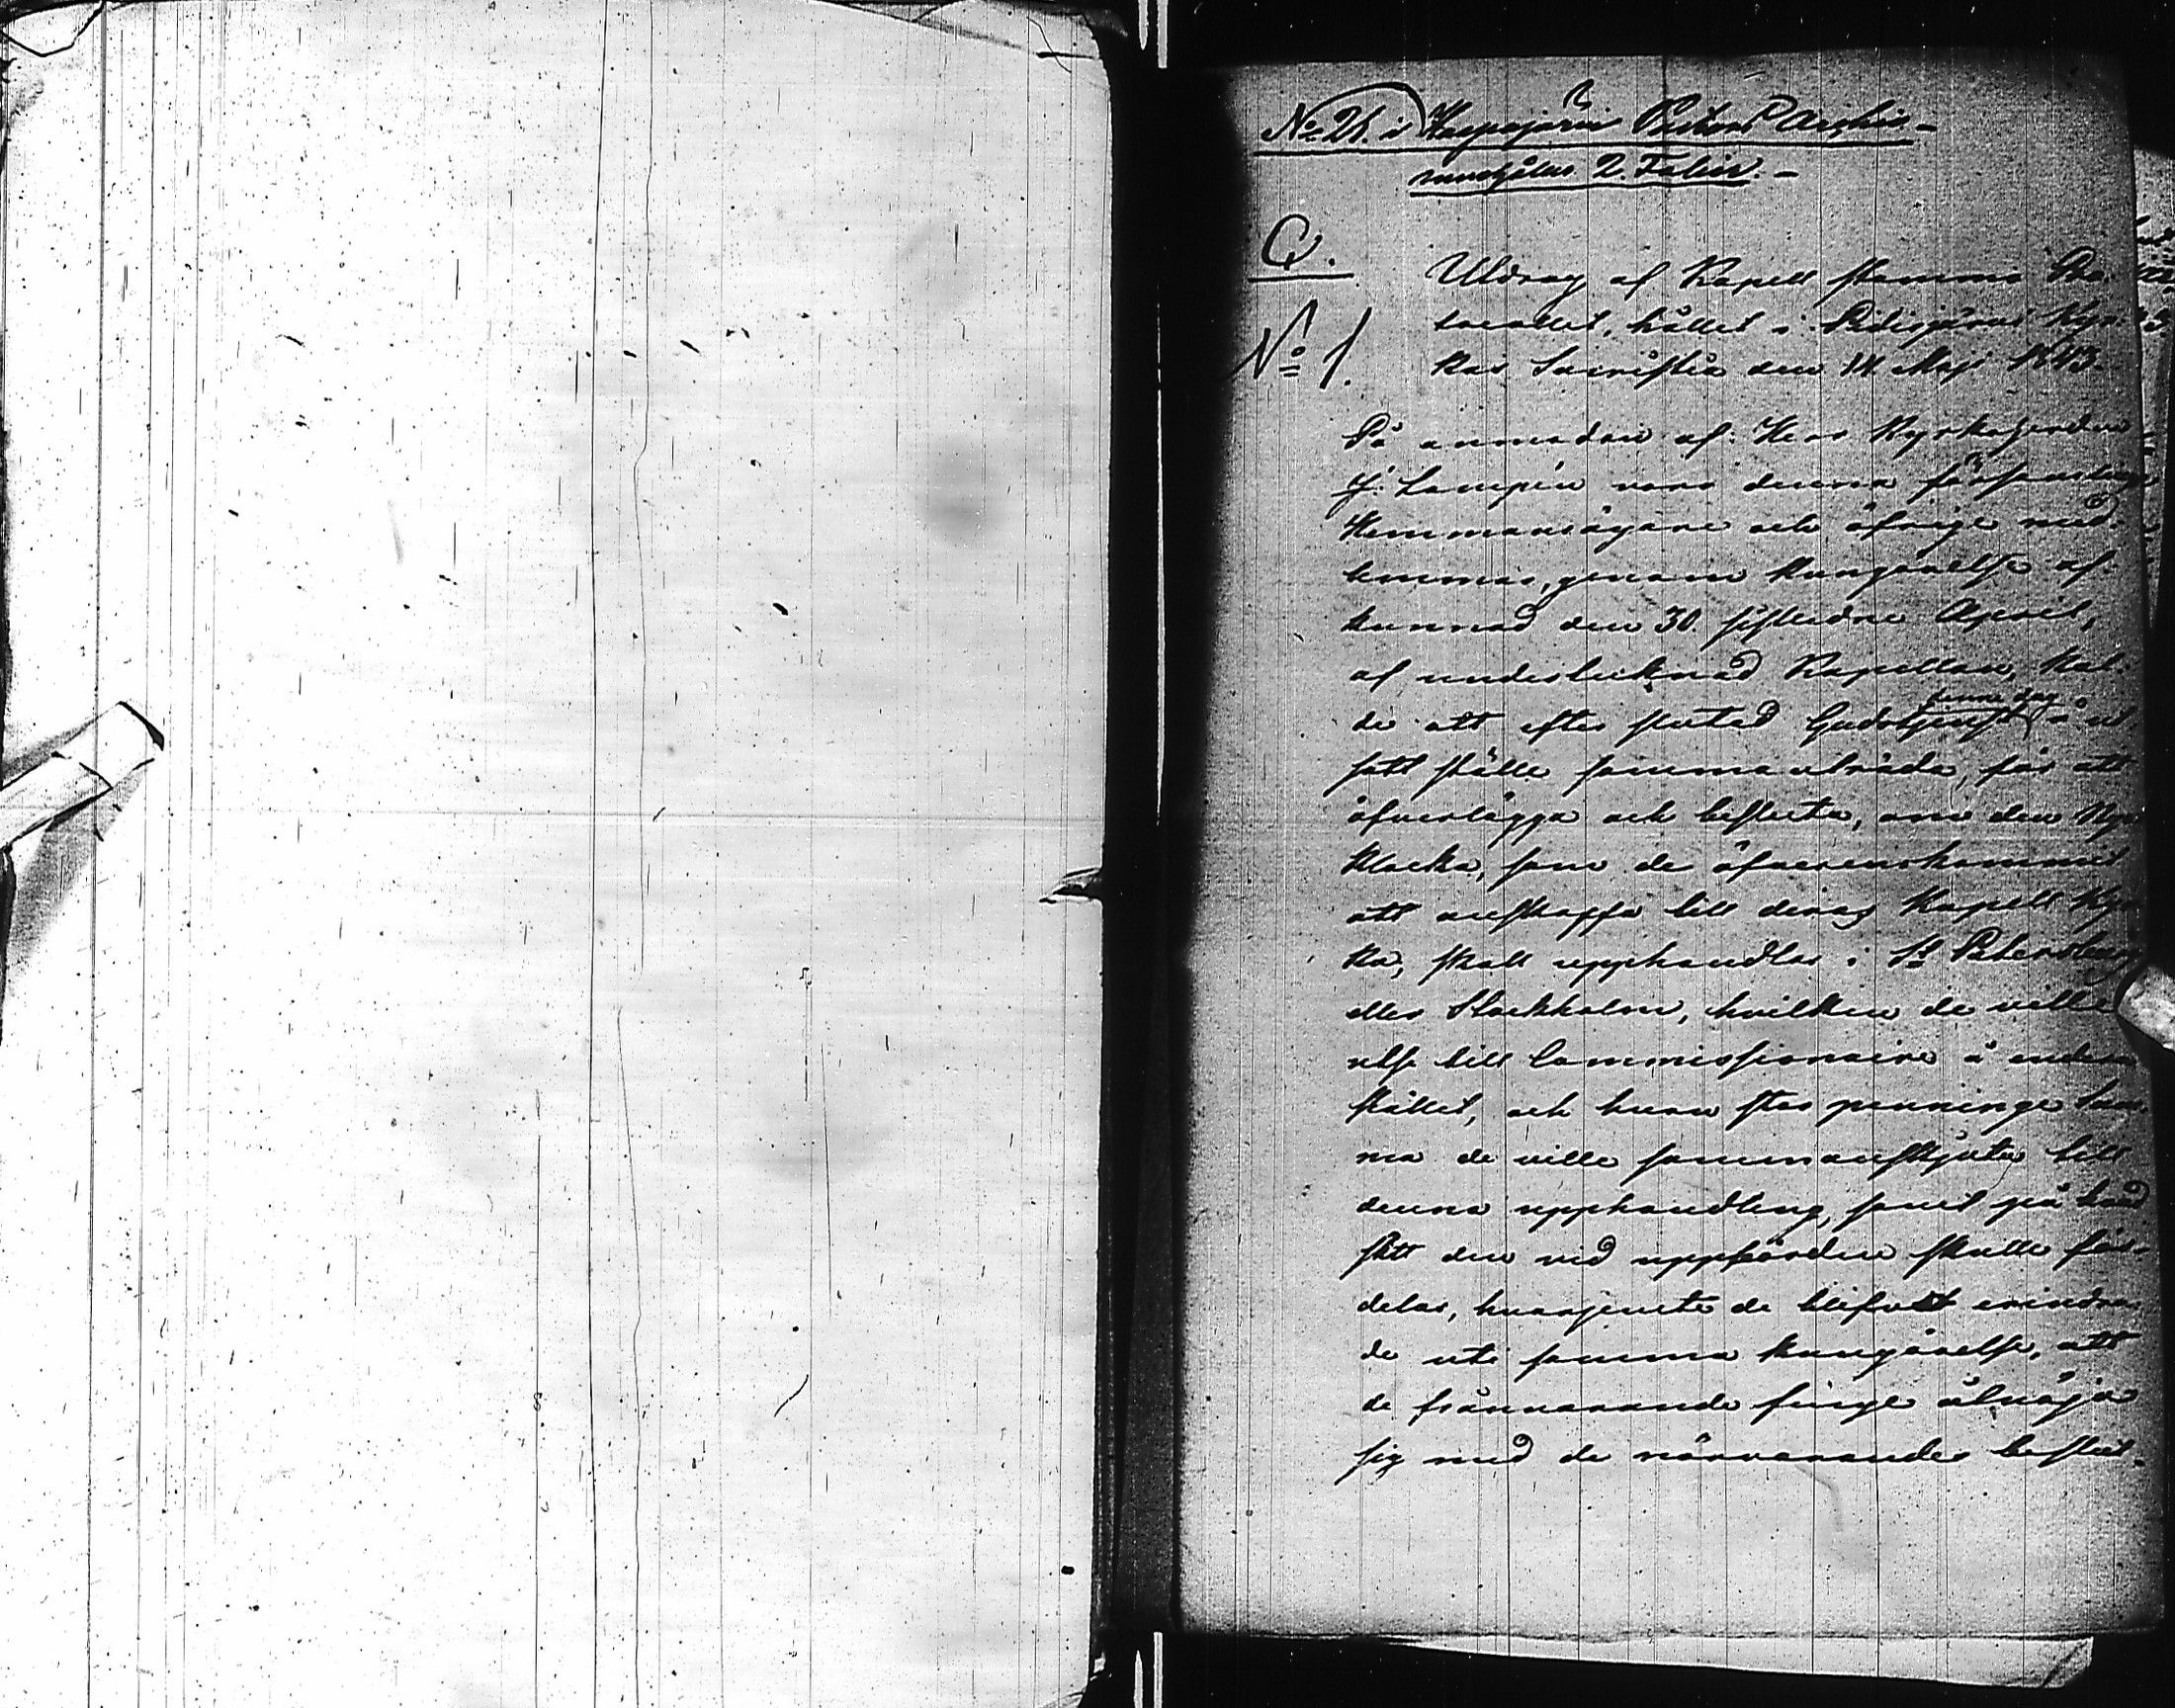 No 21. i Haapajärvi Pastors Archiv. -
innehåller 2. Folier. -
C.
No 1.
Utdrag af Kapell stämma Pro-
tocollet, hållet i Reisjärvi Kyr-
kas Sacristia den 14 Maji 1843.
På anmodan af Herr Kyrkoherden
J. Lampén voro denna församlings
Hemmansägare och öfrige med-
lemmar, genom kungörelse af-
kunnad den 30. sistledne April,
af undertecknad Kapellan, kal-
de att efter slutad Gudstjenst denne dag å ut
satt ställe sammanträda, för att
öfverlägga och besluta, om den Nya
klocka, som de öfverenskommit
att anskaffa till deras Kapell Kyr-
ka, skall upphandlas i St Petersburg
eller Stockholm, hvilken de ville
utse till Commissionaire å endera
stället, och huru stor penninge sum-
ma de ville sammanskjuta till
denna upphandling, samt på hvad
sätt den vid uppbörden skulle för-
delas, hvarjemte de blifvit erindra-
de uti samma kungörelse, att
de frånvarande finge åtnöja
sig med de närvarandes beslut.